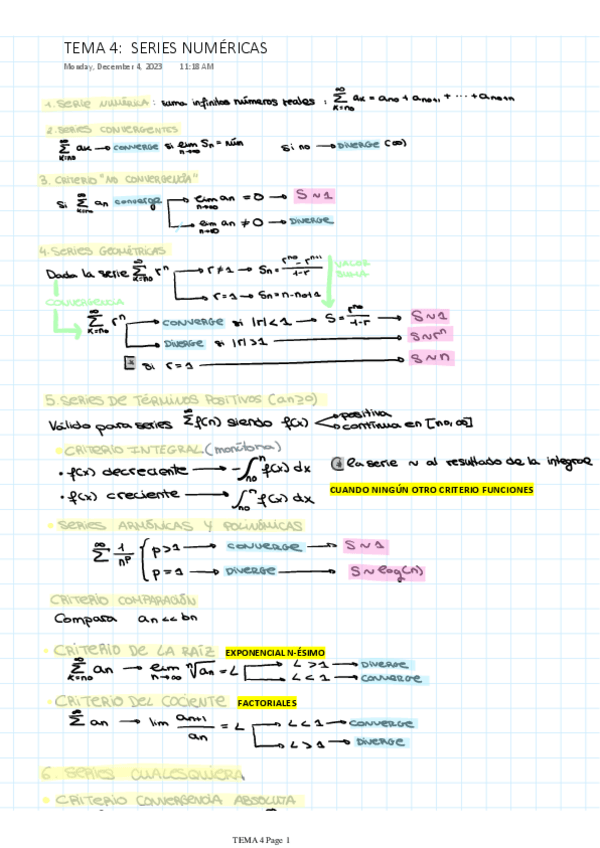 TEMA 4: SERIES NUMÉRICAS
Monday, December 4, 2023 11:18 AM
1. SERIE NUMÉRICA: suma infinitos números reales: ∞ Σ k=n₀ aₖ = aₙ₀ + aₙ₀₊₁ + ... + aₙ₀₊ₙ
2. SERIES CONVERGENTES
∞ Σ k=n₀ aₖ → CONVERGE si lim n→∞ Sₙ = núm si no → DIVERGE (∞)
3. CRITERIO "NO CONVERGENCIA"
si ∞ Σ k=n₀ an converge → lim n→∞ an = 0 → S~1
→ lim n→∞ an ≠ 0 → DIVERGE
4. SERIES GEOMÉTRICAS
Dada la serie ∞ Σ k=n₀ rⁿ → r≠1 → Sₙ = (rⁿ⁰ - rⁿ⁺¹)/(1-r) VALOR SUMA
→ r=1 → Sₙ = n-n₀+1
CONVERGENCIA
∞ Σ k=n₀ rⁿ → CONVERGE si |r|<1 → S = rⁿ⁰/(1-r) → S~1
→ DIVERGE si |r|>1 → S~rⁿ
si r=1 → S~n
5. SERIES DE TÉRMINOS POSITIVOS (an≥0)
Válido para series ∞ Σ f(n) siendo f(x) < positiva
continua en [n₀,∞]
• CRITERIO INTEGRAL (monótona)
• f(x) decreciente → -∫ₙ₀ⁿ f(x) dx la serie ~ al resultado de la integral
• f(x) creciente → ∫ₙ₀ⁿ f(x) dx CUANDO NINGÚN OTRO CRITERIO FUNCIONES
• SERIES ARMÓNICAS Y POLINÓMICAS
∞ Σ 1/nᵖ { p>1 → CONVERGE → S~1
p=1 → DIVERGE → S~log(n)
CRITERIO COMPARACIÓN
Compara an << bn
• CRITERIO DE LA RAÍZ EXPONENCIAL N-ÉSIMO
∞ Σ k=n₀ an → lim n→∞ ⁿ√an = L → L>1 → DIVERGE
→ L<1 → CONVERGE
• CRITERIO DEL COCIENTE FACTORIALES
∞ Σ an → lim an+1/an = L → L<1 → CONVERGE
→ L>1 → DIVERGE
6. SERIES CUALESQUIERA
• CRITERIO CONVERGENCIA ABSOLUTA
TEMA 4 Page 1